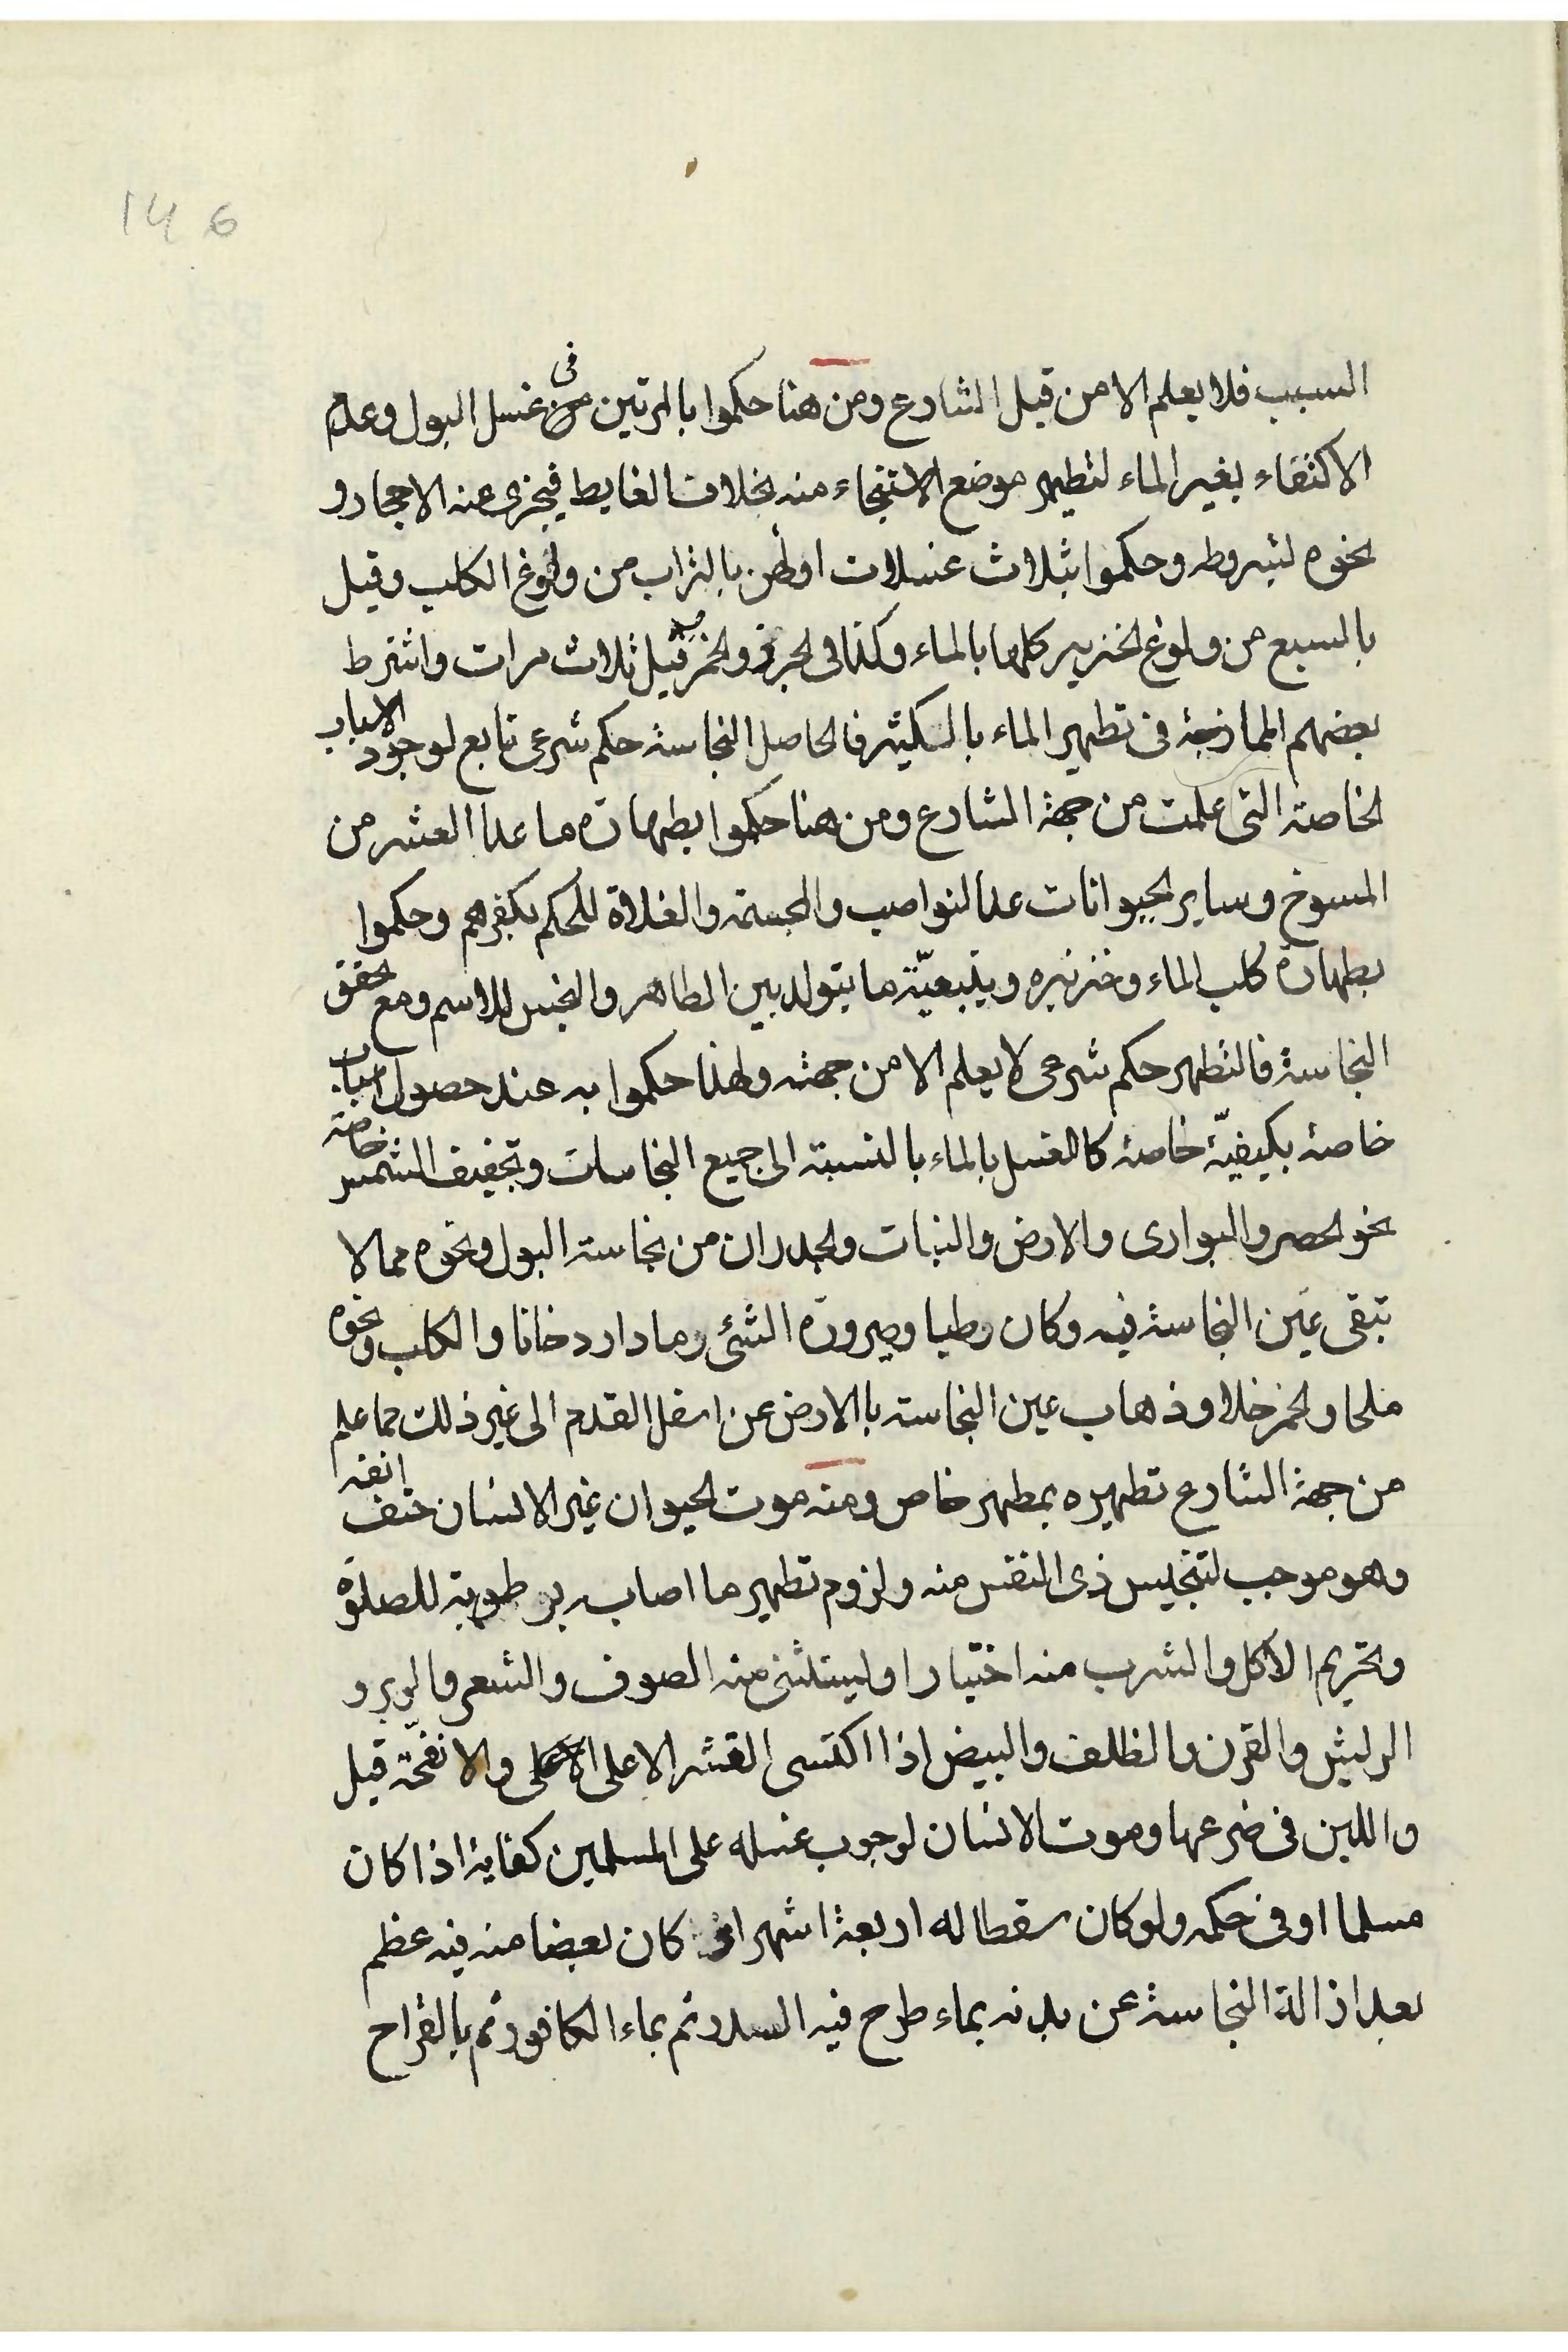 146
السبب فلا يعلم الا من قبل الشارع ومن هنا حكموا بالمرتين فى غسل البول وعدم
الاكتفاء بغير الماء لتطهير موضع الاستنجاء منه بخلاف الغايط فيجزى عنه الاحجار و
نحوه لشروطه وحكموا بثلاث غسلات اولهن بالتراب من ولوغ الكلب وقيل
بالسبع من ولوغ الخنزير كلها بالماء وكذا فى الجرذ والخمر وقيل ثلاث مرات واشترط
بعضهم الممازجة فى تطهير الماء بالكثير فالحاصل النجاسة حكم شرعى تابع لوجود الاسباب
الخاصة التى علمت من جهة الشارع ومن هنا حكموا بطهارة ما عدا العشر من
المسوخ وساير الحيوانات عدا النواصب والمجسمة والغلاة للحكم بكفرهم وحكموا
بطهارة كلب الماء وخنزيره وبتبعيّة ما يتولد بين الطاهر والنجس للاسم ومع تحقق
النجاسة فالتطهر حكم شرعى لا يعلم الا من جهته ولهذا حكموا به عند حصول اسباب
خاصة بكيفيّة خاصة كالغسل بالماء بالنسبة الى جميع النجاسات وتجفيف الشمس خاصة
نحو الحصر والبوارى والارض والنبات والجدران من نجاسة البول ونحوه مما لا
تبقى عين النجاسة فيه وكان رطبا وصيرورة الشئ رمادا ردخانا والكلب ونحوه
ملحا والخمر خلا وذهاب عين النجاسة بالارض عن اسفل القدم الى غير ذلك مما علم
من جهة الشارع تطهيره بمطهر خاص ومنه موت الحيوان غير الانسان حتف انفه
وهو موجب لتنجيس ذى النفس منه ولزوم تطهير ما اصاب برطوبة للصلوة
وتحريم الاكل والشرب منه اختيارا وليستثنى منه الصوف والشعر والوبر و
الريش والقرن والظلف والبيض اذا اكتسى القشر الاعلى والانفحّة قيل
واللبن فى ضرعها وموت الانسان لوجوب غسله على المسلمين كفاية اذا كان
مسلما او فى حكمه ولو كان سقطا له اربعة اشهر او كان بعضا منه فيه عظم
بعد ازالة النجاسة عن بدنه بماء طرح فيه السدر ثم بماء الكافور ثم بالقراح